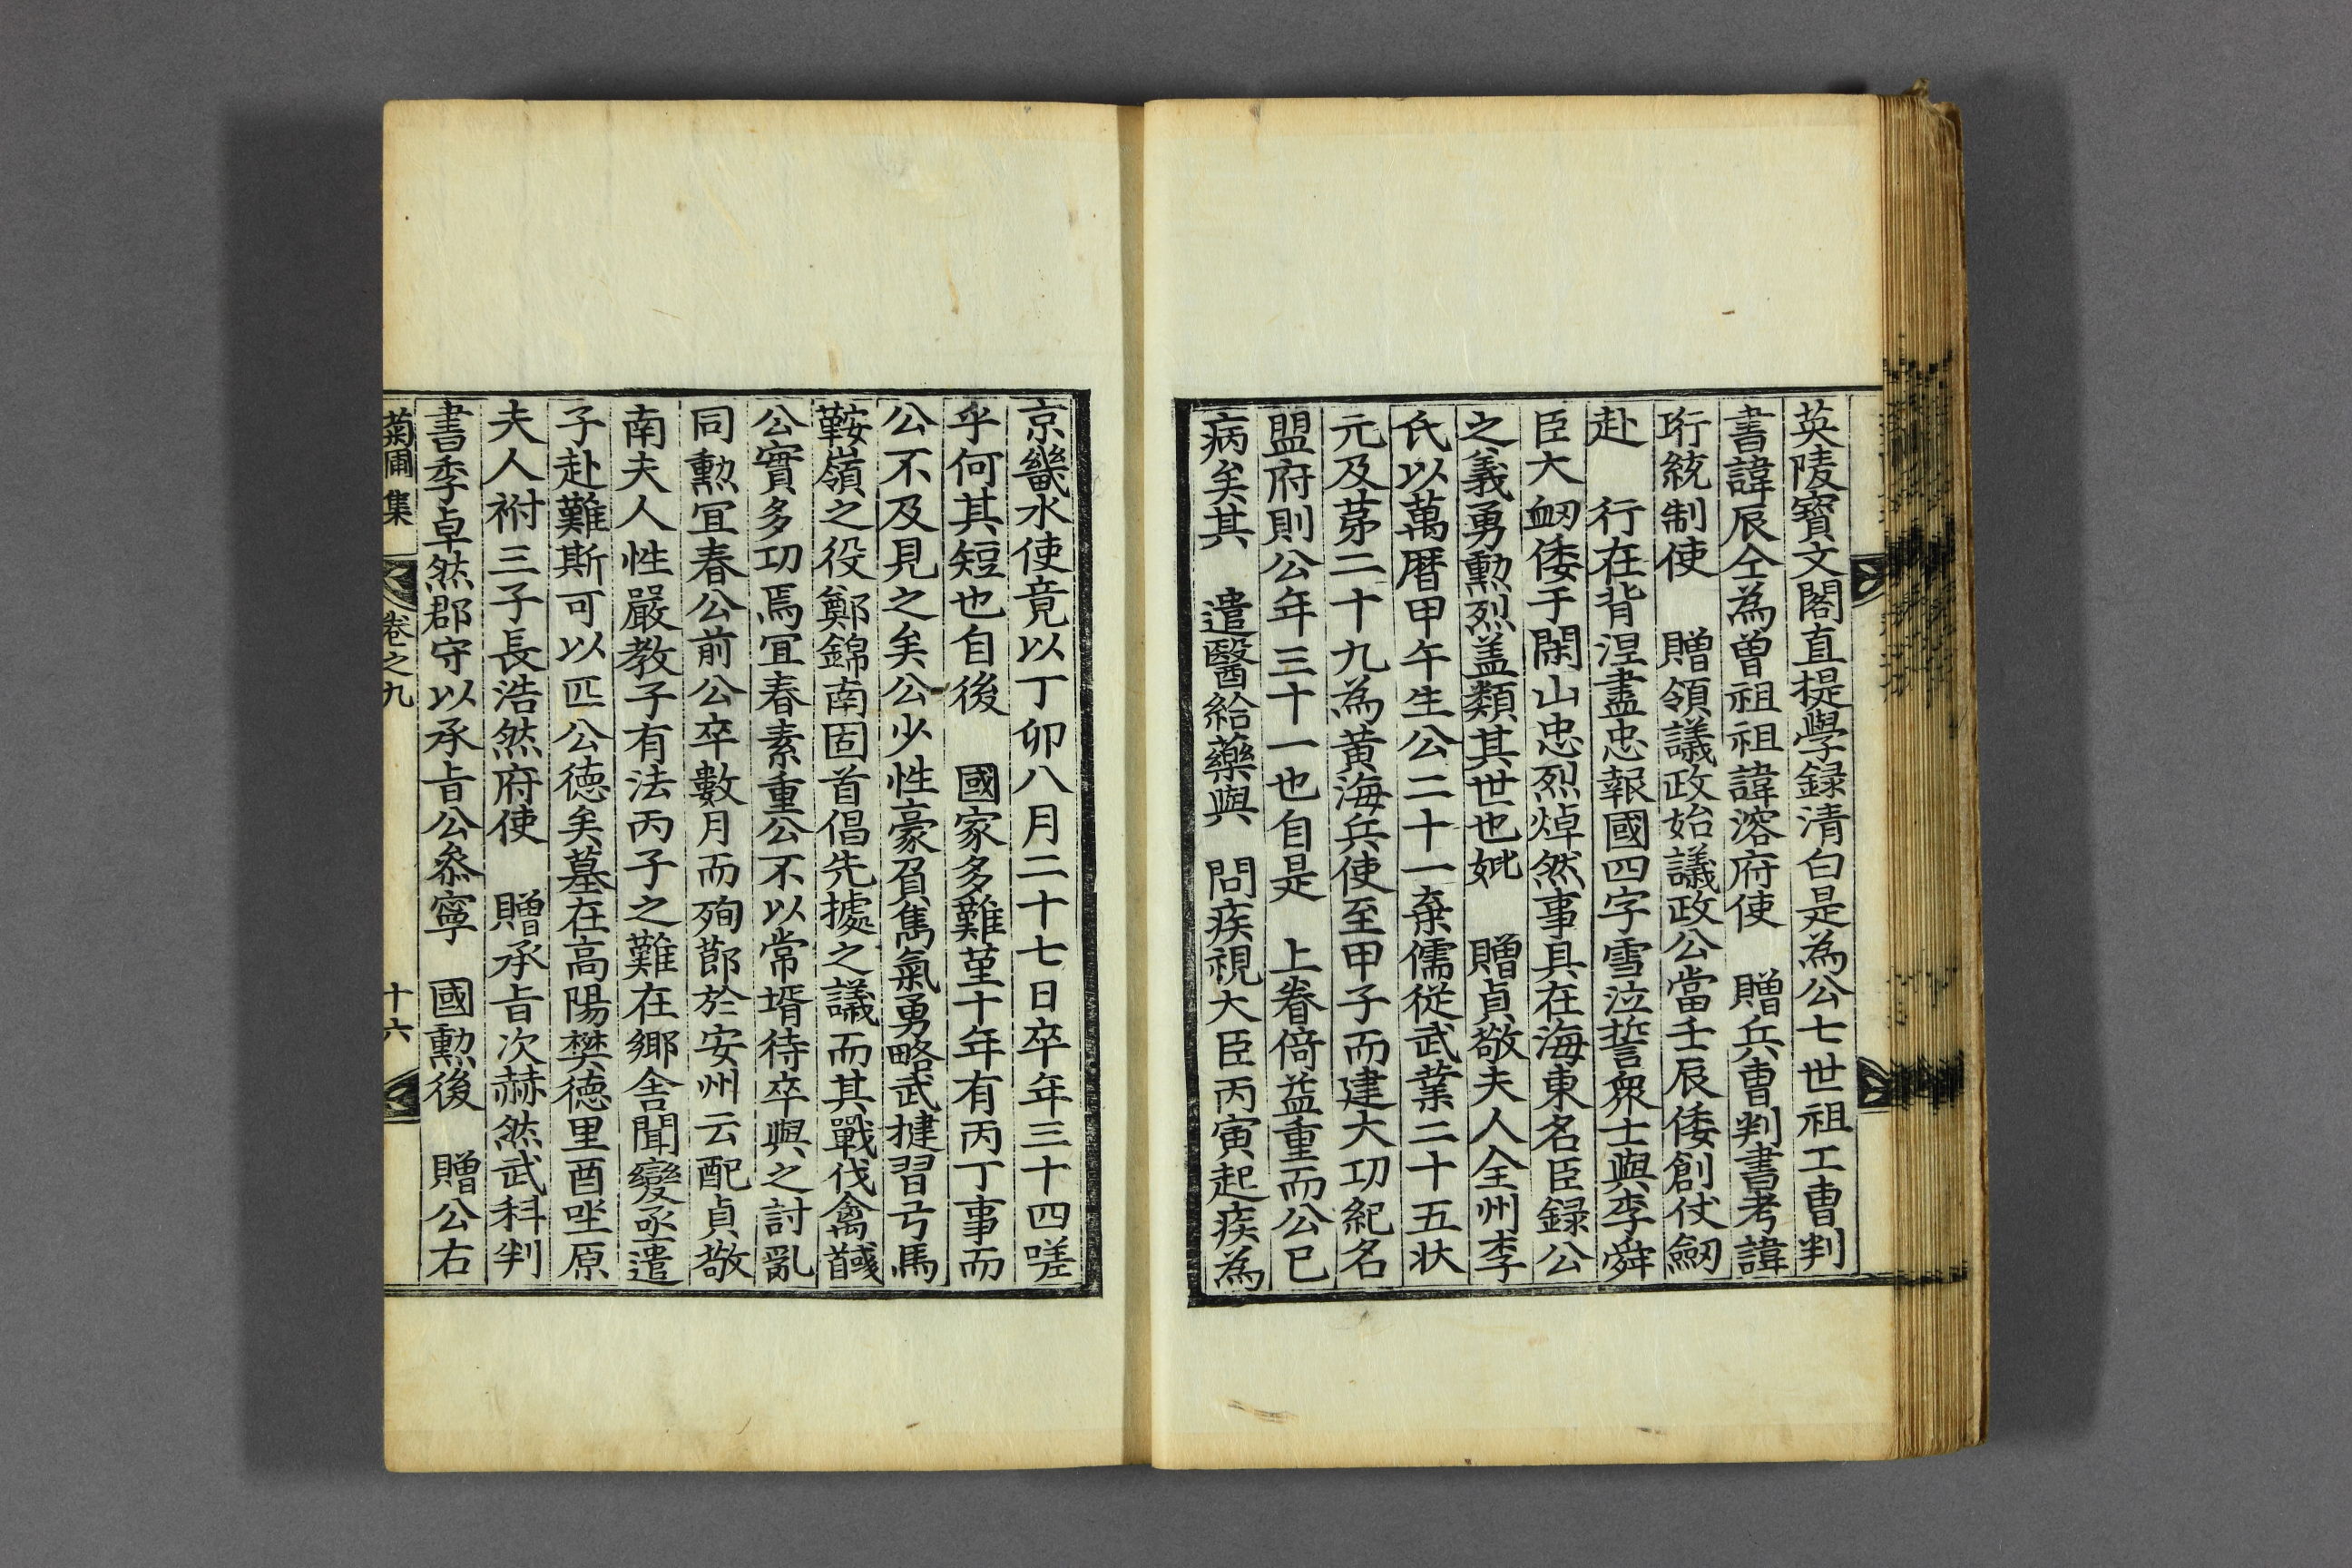 英陵寶文閣直提學録清白是為公七世祖工曺判
書諱辰仝為曽祖祖諱溶府使　贈兵曺判書考諱
珩統制使　贈領議政始議政公當壬辰倭創仗劒
赴　行在背涅盡忠報國四字雪泣誓衆士與李舜
臣大衂倭于閑山忠烈焯然事具在海東名臣録公
之義勇勲烈盖類其世也妣　贈貞敬夫人全州李
氏以萬曆甲午生公二十一棄儒從武業二十五状
元及苐二十九為黄海兵使至甲子而建大功紀名
盟府則公年三十一也自是　上眷倍益重而公已
病矣其　遣醫給藥與　問疾視大臣丙寅起疾為
京畿水使竟以丁卯八月二十七日卒年三十四嗟
乎何其短也自後　國家多難堇十年有丙丁事而
公不及見之矣公少性豪負雋氣勇略武揵習弓馬
鞍嶺之役鄭錦南固首倡先據之議而其戰伐禽馘
公實多功焉冝春素重公不以常壻待卒與之討亂
同勲冝春公前公卒數月而殉莭於安州云配貞敬
南夫人性嚴教子有法丙子之難在鄉舎聞變亟遣
子赴難斯可以匹公德矣墓在高陽樊德里酉坐原
夫人祔三子長浩然府使　贈承旨次赫然武科判
書季卓然郡守以承旨公叅寧　國勲後　贈公右
菊圃集　卷之九　十六